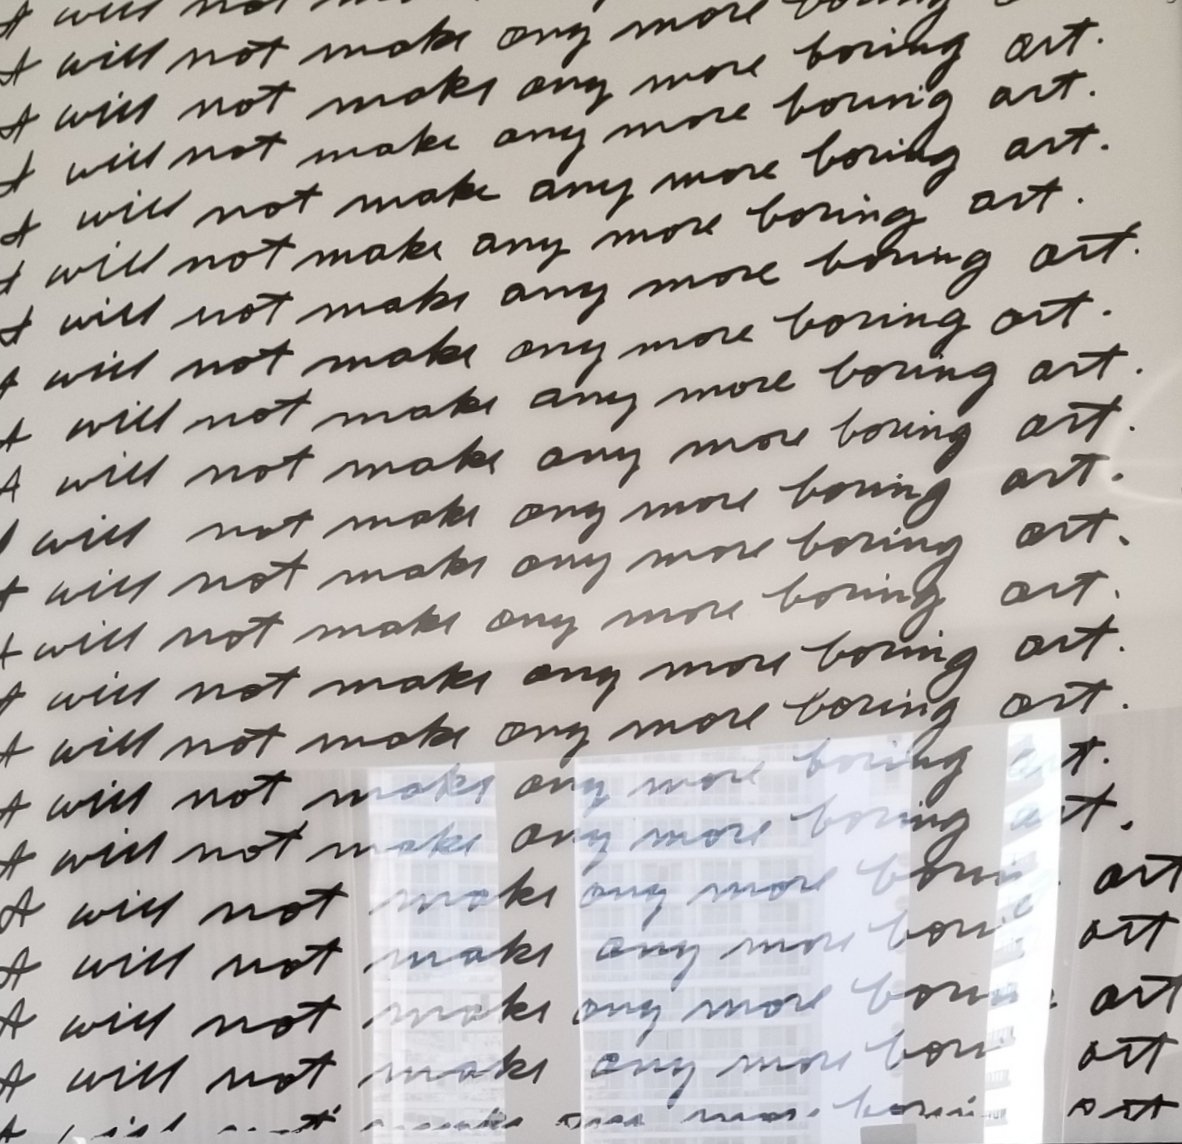 I will not
I will not make any more boring
I will not make any more boring art.
I will not make any more boring art.
I will not make any more boring art.
I will not make any more boring art.
I will not make any more boring art.
I will not make any more boring art.
I will not make any more boring art.
I will not make any more boring art.
I will not make any more boring art.
I will not make any more boring art.
I will not make any more boring art.
I will not make any more boring art.
I will not make any more boring art.
I will not make any more boring art.
I will not make any more boring art.
I will not make any more art
I will not make any more art
I will not make any more art
I will not make any more art